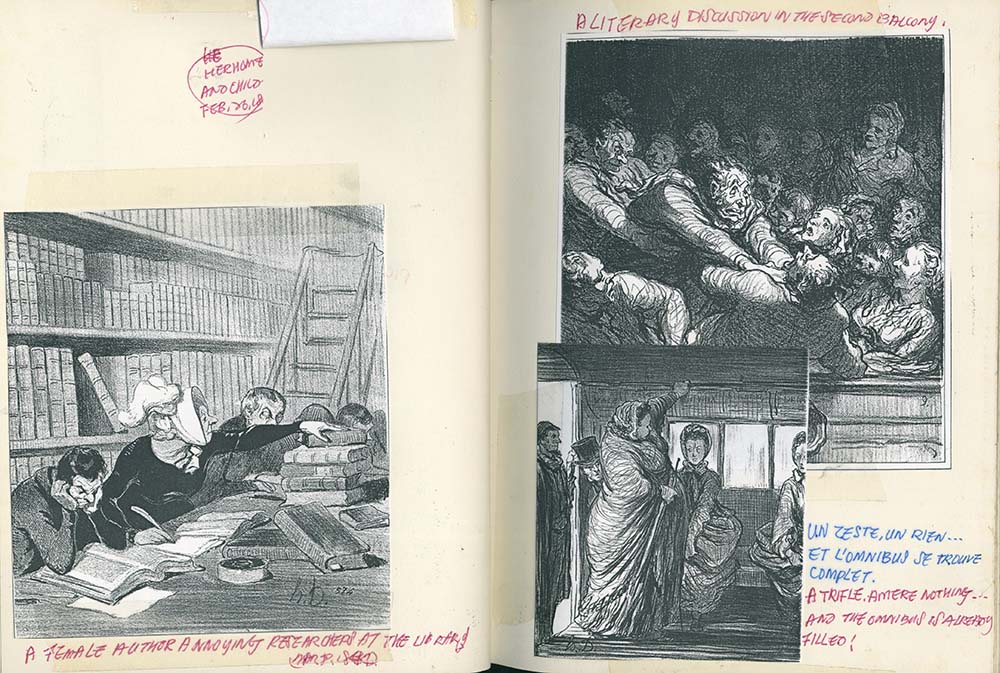 HER HOME
AND CHILD
FEB. 26, 
H.D. 576
A FEMALE AUTHOR ANNOYING RESEARCHERS AT THE LIBRARY
A LITERARY DISCUSSION IN THE SECOND BALCONY.
H.D
UN ZESTE, UN RIEN...
ET L'OMNIBUS SE TROUVE
COMPLET.
A TRIFLE. A MERE NOTHING...
AND THE OMNIBUS IS ALREADY
FILLED!